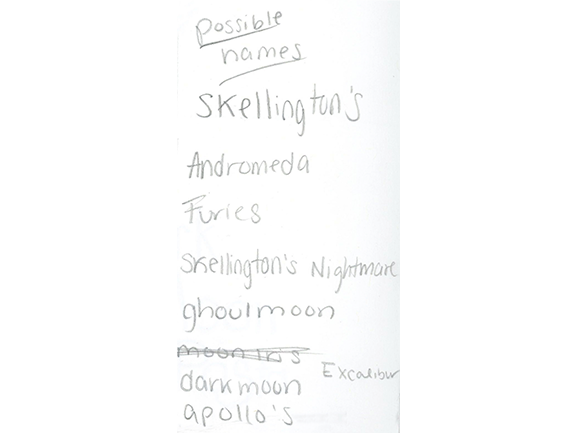 possible
names
Skellington's
Andromeda
Furies
Skellington's Nightmare
ghoulmoon
moon iris
Excalibur
darkmoon
apollo's